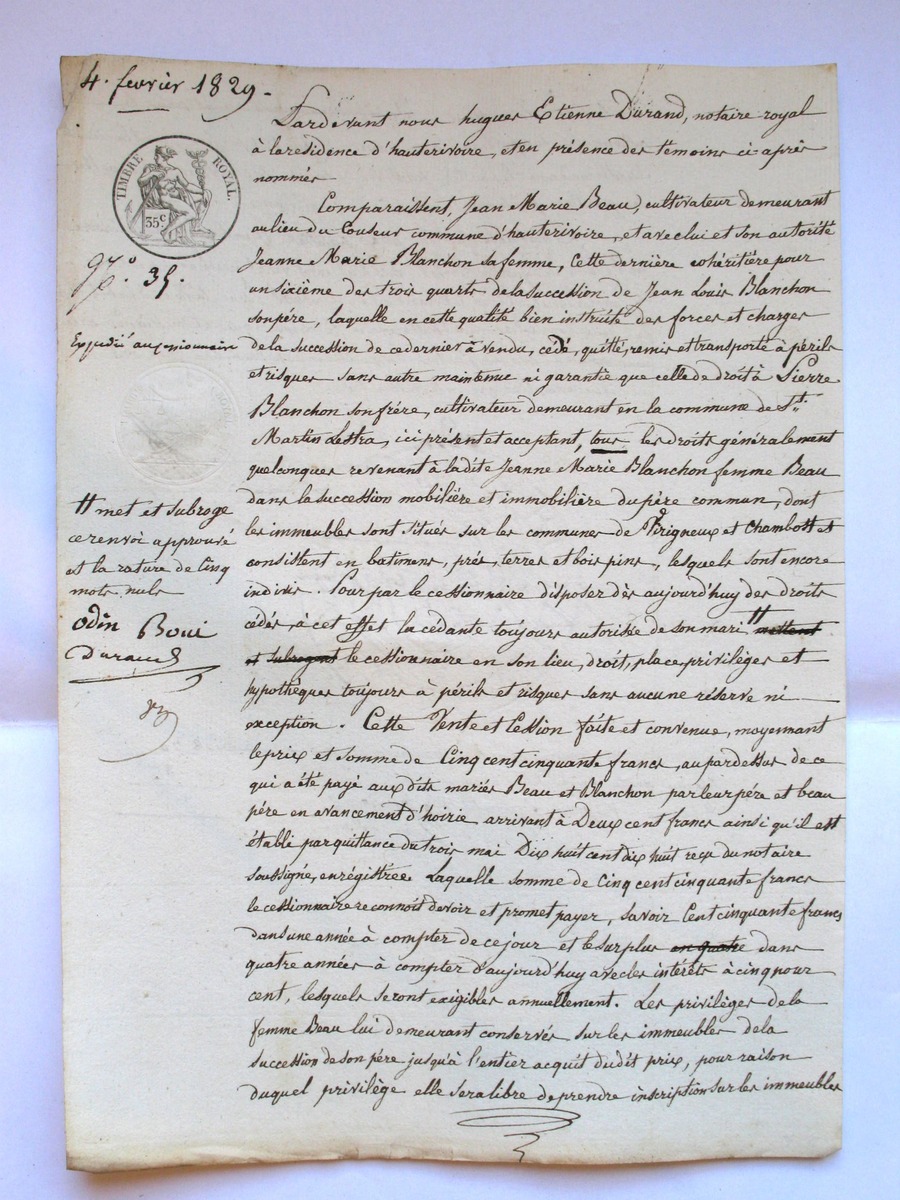 4. fevrier 1829.
TIMBRE ROYAL.
35c
N.º 35.
Expédié au cessionnaire
Pardevant nous hugues Etienne Durand, notaire royal
à la residence d'hauterivoire, et en présence des témoins ci-après
nommés
Comparaissent, Jean Marie Beau, cultivateur demeurant
au lieu du Couseur commune d'hauterivoire, et avec lui et son autorité
Jeanne Marie Blanchon sa femme, Cette dernière cohéritière pour
un sixième des trois quarts de la succession de Jean Louis Blanchon
son pére, laquelle en cette qualité bien instruite des forces et charges
de la succession de ce dernier à vendu, cédé, quitté, remis et transporté à périls
et risques sans autre maintenue ni garantie que celle de droit à Pierre
Blanchon son frére, cultivateur demeurant en la commune de St.
Martin Lestra, ici présent et acceptant, tous les droits généralement
quelconques revenant à la dite Jeanne Marie Blanchon femme Beau
dans la succession mobilière et immobilière du père commun, dont
les immeubles sont situés sur les communes de Virigneux et Chambost et
consistent en batimens, prés, terres et bois pins, lesquels sont encore
indivis. Pour par le cessionnaire disposer dès aujourd'huy des droits
cédés, à cet effet la cédante toujours autorisée de son mari, # mettent
et subrogent le cessionnaire en son lieu, droit, place, privilèges et
hypothèques toujours à périls et risques sans aucune réserve ni
exception. Cette Vente et Cession faite et convenue, moyennant
le prix et somme de Cinq cent cinquante francs, au par dessus de ce
qui a été payé aux dits mariés Beau et Blanchon par leur pére et beau
pére en avancement d'hoirie arrivant à Deux cent francs ainsi qu'il est
établi par quittance du trois mai Dix huit cent dix huit reçu du notaire
soussigné, enrégistrée. Laquelle somme de Cinq cent cinquante francs
le cessionnaire reconnoit devoir et promet payer, savoir Cent cinquante francs
dans une année à compter de ce jour et le surplus en quatre dans
quatre années à compter d'aujourd'huy avec les intérêts à cinq pour
cent, lesquels seront exigibles annuellement. Les privilèges de la
femme Beau lui demeurant conservés sur les immeubles de la
succession de son pére jusqu'à l'entier acquit dudit prix, pour raison
duquel privilège elle sera libre de prendre inscription sur les immeubles
# met et subroge
ce renvoi approuvé
et la rature de Cinq
mots nuls
Odin Boui
Durand